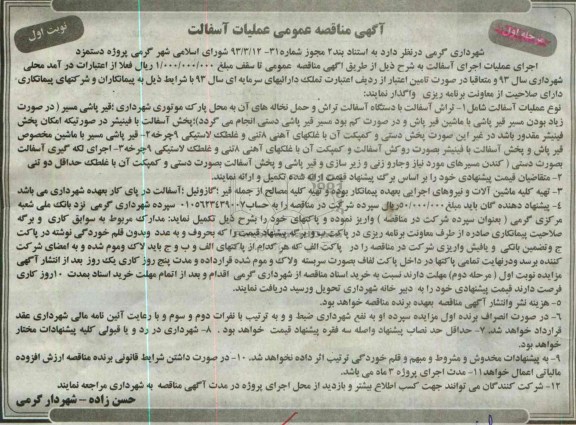 آگهی مناقصه عمومی عملیات آسفالت
نوبت اول
مرحله اول
شهرداری گرمی درنظر دارد به استناد بند۲ مجوز شماره۳۱- ۹۳/۳/۱۲ شورای اسلامی شهر گرمی پروژه دستمزد
اجرای عملیات اجرای آسفالت به شرح ذیل از طریق آگهی مناقصه عمومی تا سقف مبلغ ۱/۰۰۰/۰۰۰/۰۰۰ ریال فعلا از اعتبارات در آمد محلی
شهرداری سال ۹۳ و متعاقبا در صورت تامین اعتبار از ردیف اعتبارت تملک دارائیهای سرمایه ای سال ۹۳ با شرایط ذیل به پیمانکاران و شرکتهای پیمانکاری
دارای صلاحیت از معاونت برنامه ریزی واگذار نمایند:
نوع عملیات آسفالت شامل۱- تراش آسفالت با دستگاه آسفالت تراش و حمل نخاله های آن به محل پارک موتوری شهرداری ؛قیر پاشی مسیر ( در صورت
زیاد بودن مسیر قیر پاشی با ماشین قیر پاش و در صورت کم بود مسیر قیر پاشی دستی انجام می گردد)؛پخش آسفالت با فینیشر در صورتیکه امکان پخش
فینیشر مقدور باشد در غیر این صورت پخش دستی و کمپکت آن با غلکهای آهنی ۸تنی و غلطک لاستیکی ۹چرخه۲- قیر پاشی مسیر با ماشین مخصوص
قیر پاش و پخش آسفالت با فینیشر بصورت روکش آسفالت و کمپکت آن با غلکهای آهنی ۸تنی و غلطک لاستیکی ۹چرخه۳- اجرای لکه گیری آسفالت
بصورت دستی ( کندن مسیرهای مورد نیاز وجارو زنی و زیر سازی و قیر پاشی و پخش آسفالت بصورت دستی و کمپکت آن با غلطک حداقل دو تنی
۲- متقاضیان قیمت پیشنهادی خود را بر اساس برگ پیشنهاد قیمت ارائه شده تکمیل و ارائه نمایند.
۳- تهیه کلیه ماشین آلات و نیروهای اجرایی بعهده پیمانکار بوده و تهیه کلیه مصالح از جمله قیر ؛گازوئیل ؛آسفالت در پای کار بعهده شهرداری می باشد
۴- پیشنهاد دهنده گان باید مبلغ ۵۰/۰۰۰/۰۰۰ ریال سپرده شرکت در مناقصه را به حساب ۰۱۰۵۶۳۴۳۹۰۰۷ سپرده شهرداری گرمی نزد بانک ملی شعبه
مرکزی گرمی ( بعنوان سپرده شرکت در مناقصه ) واریز نموده و پاکتهای خود را بشرح ذیل تکمیل نماید: مدارکه مربوط به سوابق کاری و برگه
صلاحیت پیمانکاری صادره از طرف معاونت برنامه ریزی در پاکت ب و برگه پیشنهاد قیمت را که بحروف و به عدد وبدون قلم خوردگی نوشته در پاکت
ج وتضمین بانکی و یافیش واریزی شرکت در مناقصه را در پاکت الف که هر کدام از پاکتهای الف و ب و ج باید لاک وموم شده و به امضای شرکت
کننده برسد ودرنهایت تمامی پاکتها در داخل پاکت لفاف بصورت سربسته ولاک و موم شده قرارداده و مدت پنج روز کاری یک روز بعد از انتشار آگهی
مزایده نوبت اول ( مرحله دوم) مهلت دارند نسبت به خرید اسناد مناقصه از شهرداری گرمی اقدام و بعد از اتمام مهلت خرید اسناد بمدت ۱۰روز کاری
فرصت دارند قیمت پیشنهادی خود را به دبیر خانه شهرداری تحویل ورسید دریافت نمایند.
۵- هزینه نشر وانتشار آگهی مناقصه بعهده برنده مناقصه خواهد بود.
۶- در صورت انصراف برنده اول مزایده سپرده او به نفع شهرداری ضبط و و به ترتیب با نفرات دوم و سوم و با رعایت آئین نامه مالی شهرداری عقد
قرارداد خواهد شد. ۷- حداقل حد نصاب پیشنهاد واصله سه فقره پیشنهاد قیمت خواهد بود . ۸- شهرداری در رد و یا قبولی کلیه پیشنهادات مختار
خواهد بود.
۹- به پیشنهادات مخدوش و مشروط و مبهم و قلم خوردگی ترتیب اثر داده نخواهد شد. ۱۰- در صورت داشتن شرایط قانونی برنده مناقصه ارزش افزوده
مالیاتی اعمال خواهد۱۱- مدت اجرای پروژه ۳ ماه می باشد.
۱۲- شرکت کنندگان می توانند جهت کسب اطلاع بیشتر و بازدید از محل اجرای پروژه در مدت آگهی مناقصه به شهرداری مراجعه نمایند
حسن زاده - شهردار گرمی